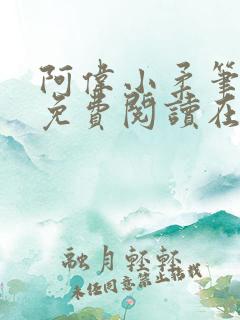 阿偉小柔筆
免費閱讀在
融月輕輕
未经同意禁止搭载